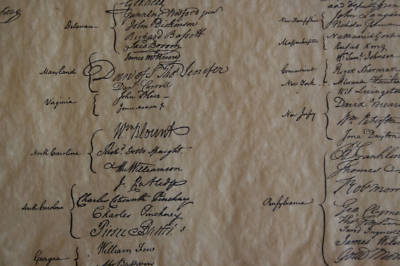 Gunning Bedford jun
Delaware
John Dickinson
Richard Bassett
Jaco Broom
James McHenry
Maryland
Dan of St Thos Jenifer
Danl Carroll
Virginia
John Blair
James Madison Jr
Wm Blount
North Carolina
Richd Dobbs Spaight
Hu Williamson
J. Rutledge
South Carolina
Charles Cotesworth Pinckney
Charles Pinckney
Pierce Butler
Georgia
William Few
Abr Baldwin
New Hampshire
John Langdon
Massachusetts
Nathaniel Gorham
Rufus King
Connecticut
Wm Saml Johnson
Roger Sherman
New York
Alexander Hamilton
Wil Livingston
New Jersey
David Brearley
Wm Paterson
Jona Dayton
B Franklin
Thomas
Rob Morris
Pensylvania
Geo Clymer
Thos
Jared Ingersoll
James Wilson
Gouv Morris